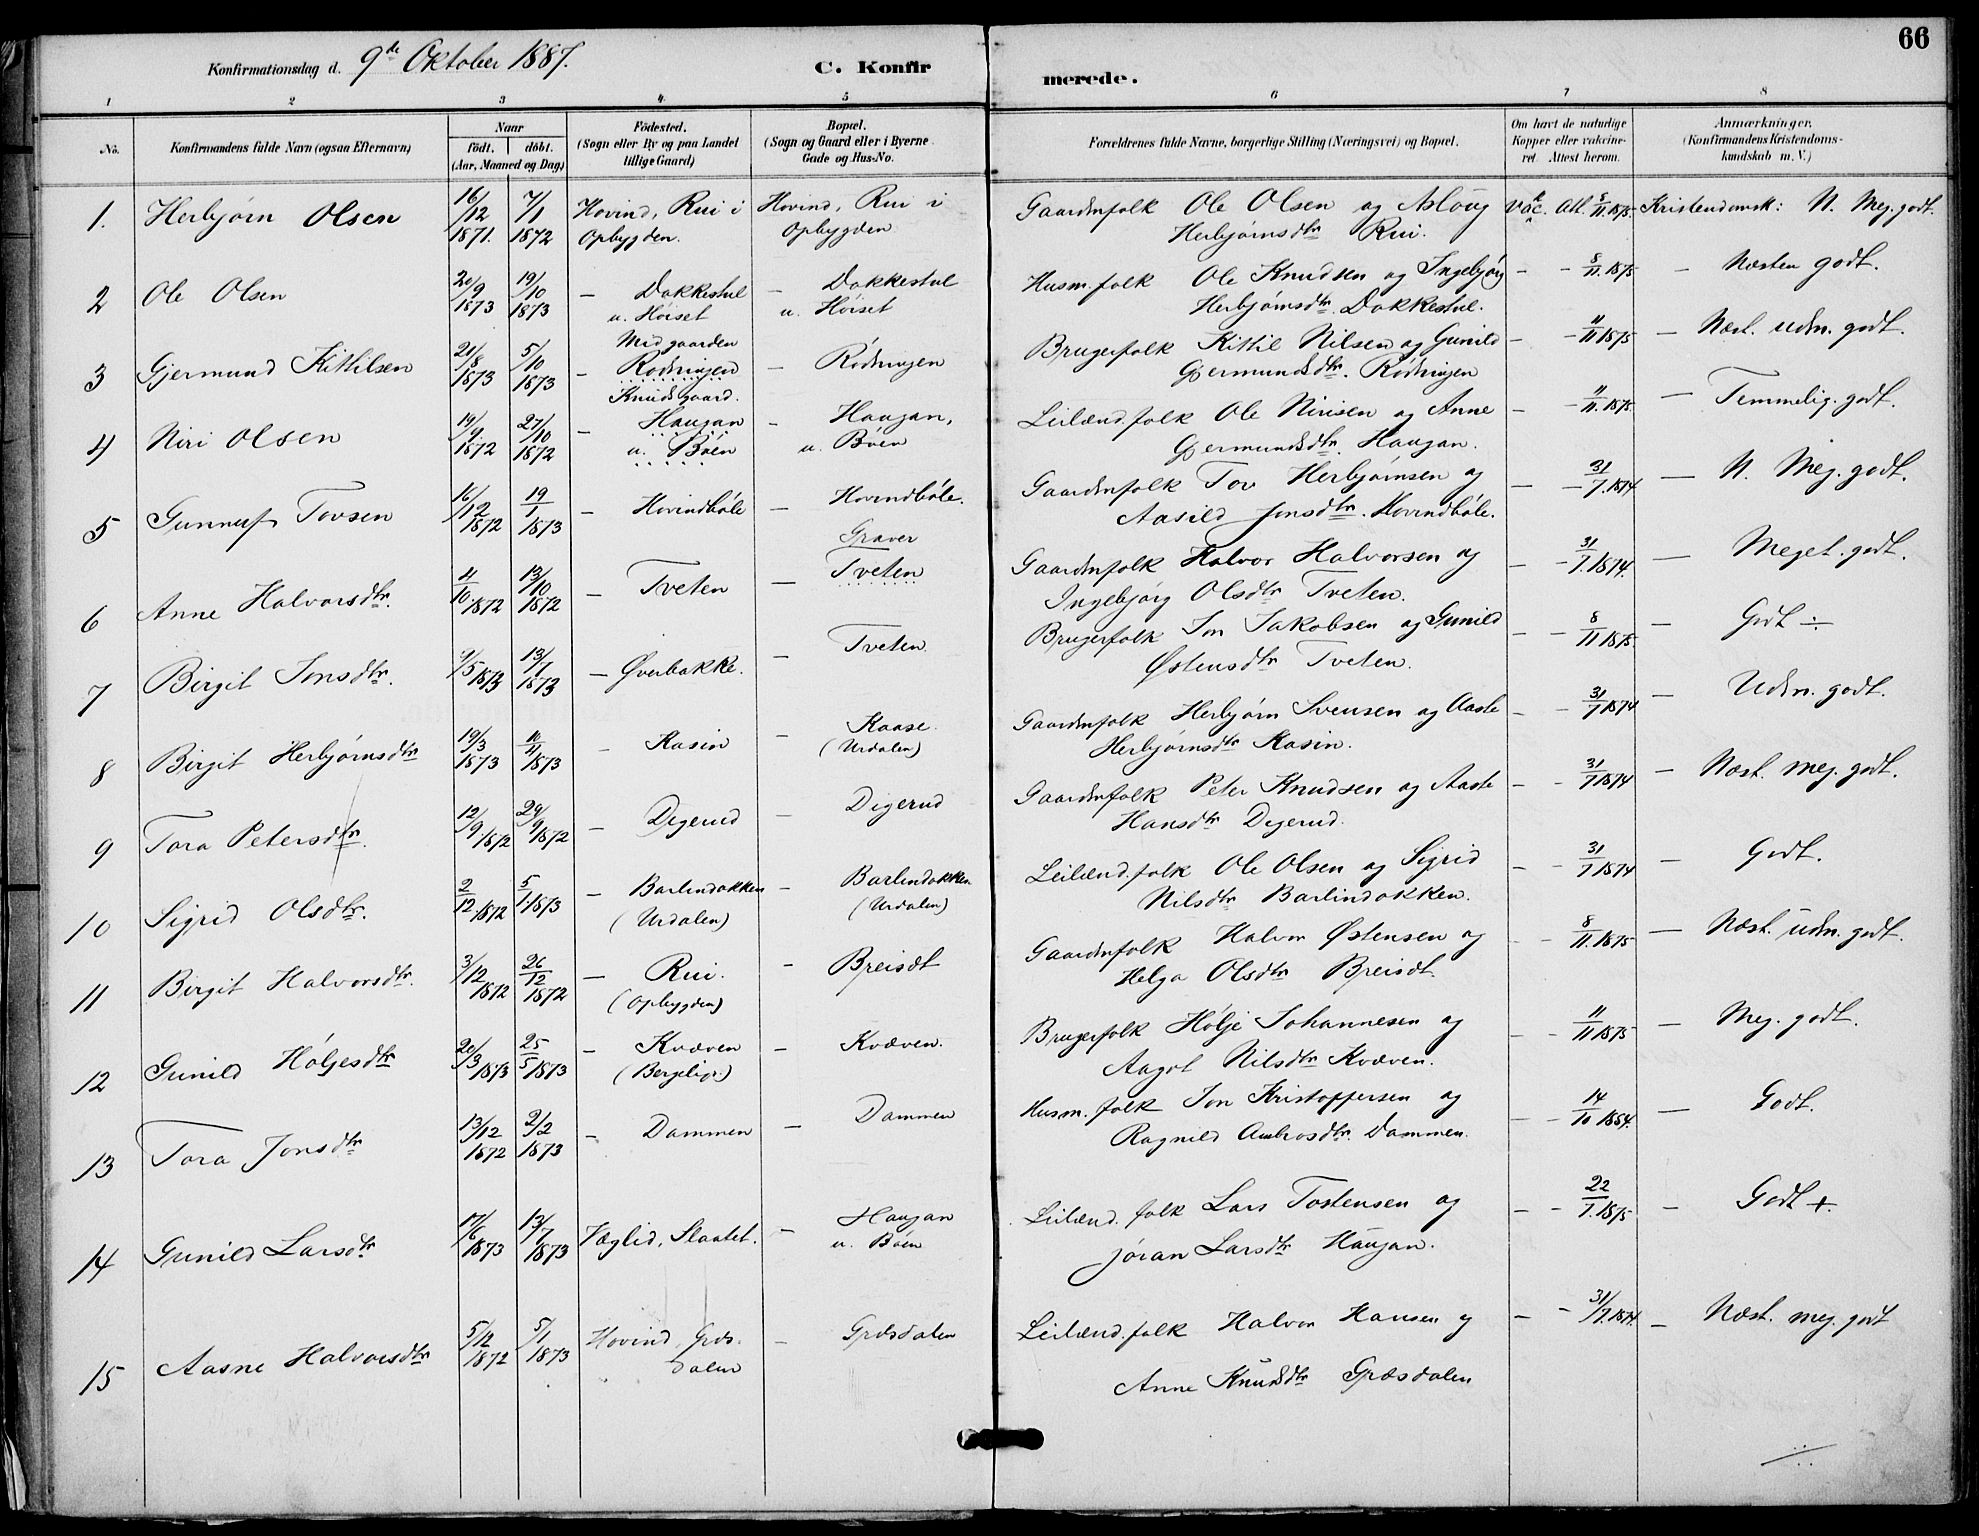 66
Konfirmationsdag d. 9de Oktober 1887.
C. Konfirmerede.
1 2 3 4. 5 6 7 8
No. Konfirmandens fulde Navn (ogsaa Efternavn)
Naar født. døbt. (Aar, Maaned og Dag)
Fødested. (Sogn eller By og paa Landet tillige Gaard)
Bopæl. (Sogn og Gaard eller i Byerne Gade og Hus-No.
Forældrenes fulde Navne, borgerlige Stilling (Næringsvei) og Bopæl.
Om havt de naturlige Kopper eller vakcineret. Attest herom.
Anmærkninger. (Konfirmandens Kristendomskundskab m. V.)
1. Herbjørn Olsen 16/12 1871. 7/1 1872 Hovind, Rui i Opbygden. Hovind, Rui i Opbygden Gaardmfolk Ole Olsen og Asloug Herbjørnsdtr Rui. Vac. Att. 8/11.1875 Kristendomsk: N. Meg. godt.
2 Ole Olsen 20/9 1873 19/10 1873 – Dokkestul u. Hørset – Dokkestul u. Hørset Husm.folk Ole Knudsen og Ingebjørg Herbjørnsdtr. Dokkestul. – – 8/11.1875 – Næsten godt.
3 Gjermund Kittilsen 21/8 1873 5/10 1873 – Midgaarden Rødningen Knudsgaard. – Rødningen Brugerfolk Kittil Nilsen og Gunild Gjermundsdtr. Rødningen – – 11/11 1875 – Næst. udm. godt.
4 Niri Olsen 19/9 1872 27/10 1872 – Haugan u. Bøen – Haugan, u. Bøen Leilænd.folk Ole Nirisen og Anne Gjermundsdtr. Haugan. – – 11/11.1875 – Temmelig. godt.
5 Gunnulf Tovsen 16/12 1872 19/1 1873 – Hovindbøle – Hovindbøle. Gaardmfolk Tov Herbjørnsen og Aasild Jonsdtr. Hovindbøle. – – 31/7.1874 – N. Meg. godt.
6 Anne Halvorsdtr. 4/10.1872 13/10 1872 – Tveten – Graver Tveten Gaardmfolk Halvor Halvorsen og Ingebjørg Olsdtr Tveten. – – 31/7.1874. – Meget. godt.
7 Birgit Jonsdtr. 9/5 1873 13/7 1873 – Øverbakke. – Tveten Brugerfolk Jon Jakobsen og Gunild Østensdtr Tveten. – – 8/11 1875 – Godt ÷
8 Birgit Herbjørnsdtr 19/3 1873 1873 – Kasin – Kaase (Urdalen) Gaardmfolk Herbjørn Svensen og Aaste Herbjørnsdtr Kasin. – – 31/7 1874 – Udm. godt.
9 Tora Petersdtr. 12/9.1872 29/9 1872 – Digerud – Digerud Gaardmfolk Peter Knudsen og Aaste Hansdtr Digerud. – – 31/7 1874 – Næst. meg. godt.
10 Sigrid Olsdtr. 2/12 1872 5/1.1873 – Barlindokken (Urdalen) – Barlindokken (Urdalen) Leilænd.folk Ole Olsen og Sigrid Nilsdtr Barlindokken. – – 31/7 1874 – Godt.
11 Birgit Halvorsdtr. 3/12 1872 26/12 1872 – Rui. (Opbygden) – Breisdt Gaardmfolk Halvor Østensen og Helga Olsdtr Breisdt – – 8/11.1875 – Næst. udm. godt.
12 Gunild Høljesdtr 20/3 1873 25/5 1873 – Kvæven – Kvæven. Brugerfolk Hølje Johannesen og Aagot Nilsdtr Kvæven. – – 11/11 1875 – Meg. godt.
13 Tora Jonsdtr 13/12 1872 2/2 1873 – Dammen – Dammen Husm.folk Jon Kristoffersen og Ragnild Ambrosdtr. Dammen. – – 14/10 1884. – Godt.
14 Gunild Larsdtr 17/6 1873 13/7 1873 Væglid, Slaatet. – Haugan u. Bøen Leilænd.folk Lars Tostensen og Jøran Larsdtr Haugan. – – 22/7.1875 – Godt +.
15 Aasne Halvorsdtr 5/12 1872 5/1 1873 Hovind, Græsdalen – Græsdalen Leilænd.folk Halvor Hansen og Anne Knudsdtr Græsdalen – – 31/7.1874. – Næst. meg. godt